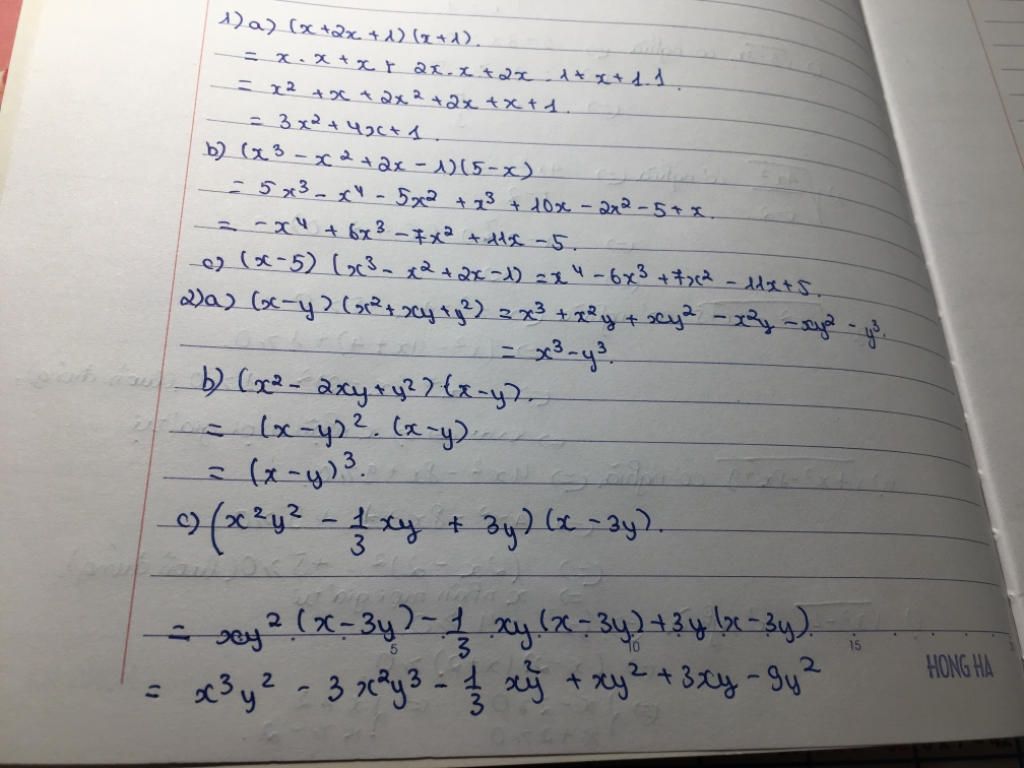 1) a) (x+2x+1)(x+1).
= x.x+x+ 2x.x+2x.1+x+1.1.
= x² +x+2x²+2x+x+1.
= 3x²+4x+1.
b) (x³-x²+2x-1)(5-x)
= 5x³-x⁴-5x²+x³+10x-2x²-5+x.
= -x⁴+6x³-7x²+11x-5.
c) (x-5)(x³-x²+2x-1)=x⁴-6x³+7x²-11x+5.
2)a) (x-y)(x²+xy+y²) =x³+x²y+xy²-x²y-xy²-y³.
= x³-y³.
b) (x²-2xy+y²).(x-y).
= (x-y)².(x-y)
= (x-y)³.
c) (x²y² - 1/3 xy + 3y)(x-3y).
= xy²(x-3y)- 1/3 xy(x-3y)+3y(x-3y).
5 10 15
HONG HA
= x³y² - 3x²y³ - 1/3 xy² + xy² + 3xy - 9y²